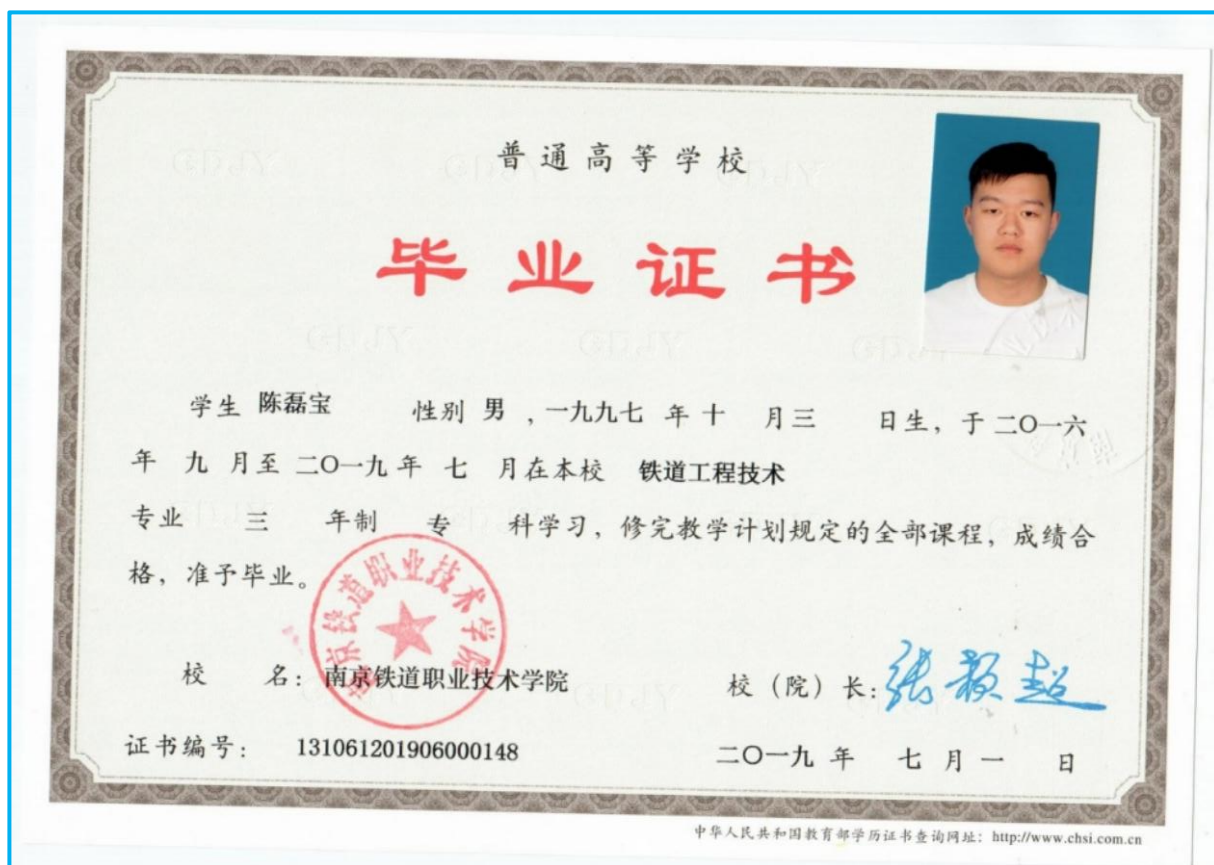 普通高等学校
毕业证书
学生 陈磊宝 性别 男 ,一九九七 年 十 月 三 日生, 于 二〇一六
年 九 月至 二〇一九 年 七 月在本校 铁道工程技术
专业 三 年制 专 科学习, 修完教学计划规定的全部课程, 成绩合
格, 准予毕业。
南京铁道职业技术学院
校 名: 南京铁道职业技术学院
校(院)长: 张颖超
证书编号: 131061201906000148
二〇一九 年 七 月 一 日
中华人民共和国教育部学历证书查询网址: http://www.chsi.com.cn